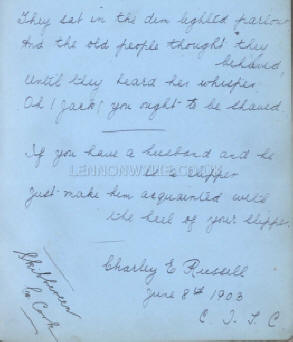 They sat in the dim lighted parlour
And the old people thought they
behaved,
Until they heard her whisper
Oh! Jack! you ought to be shaved.
If you have a husband and he
is a
Just make him acquainted with
the heel of your slipper.
Charley E Russell
June 8th 1903
C. I. S. C
Skibbereen
Co Cork
LENNONWYLIE.CO.UK